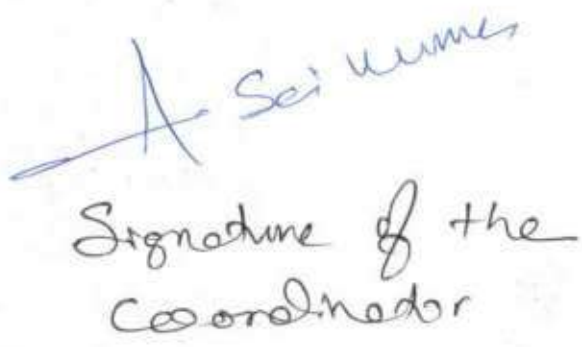 A. Sai Kumar
Signature of the
Coordinator